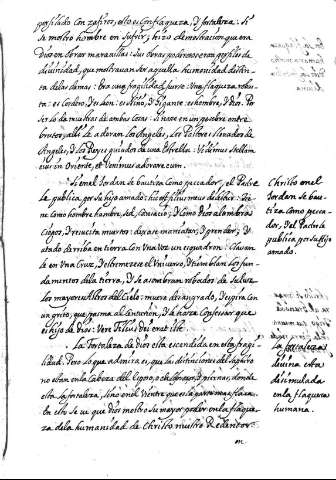 perfilado con zafiros, esto es con flaqueza, y fortaleza: Si
se mostro hombre en sufrir, hizo demostracion que era
Dios en obrar maravillas: sus obras poderosas eran perfiles de
divinidad, que mostravan ser aquella humanidad distin-
ta de las demas: Era una fragilidad fuerte: Una flaqueza robus-
ta: es Cordero, y es Leon: es Niño, y Gigante: es hombre, y Dios. Por
ser lo da muestras de ambas cosas: Si nace en un pesebre entre
brutos, alli le adoran los Angeles, los Pastores llenados de
Angeles, y los Reyes guiados de una Estrella: Vidimus stellam
eius in Oriente, et venimus adorare eum.
Si en el Jordan se bautiza como peccador, el Padre
le publica por su hijo amado: hic est filius meus dilectus: Vie-
ne como hombre hambre, sed, y cansacio; y como Dios alumbra
ciegos, y resucita muertos: dejase maniatar, y prender, y
atado derriba en tierra con una voz un esquadron: Clavan-
le en una Cruz, y estremecese el Universo, y tiemblan los fun-
damentos de la tierra, y se asombran robados de su luz
los mayores Astros del Cielo: muere desangrado, y espira con
un grito, que pasma al Centurion, y le haze confessar que
es hijo de Dios: Vere filius Dei erat iste.
La fortaleza de Dios esta escondida en esta fragi-
lidad. Pero lo que admira es, que las distinciones del zafiro
no estan en la Cabeza del Esposo, o en los braços, y piernas, donde
esta la fortaleza, sino en el Vientre que es la parte mas flaca.
En esto se ve que Dios mostro su mayor poder en la flaque-
za de la humanidad de Christo nuestro Redentor.
en
Christo en el
Jordan se bau-
tiza como pecca-
dor, y el Padre le
publica por su Hijo
amado.
La fortaleza
divina esta
disimulada
en la flaqueza
humana.